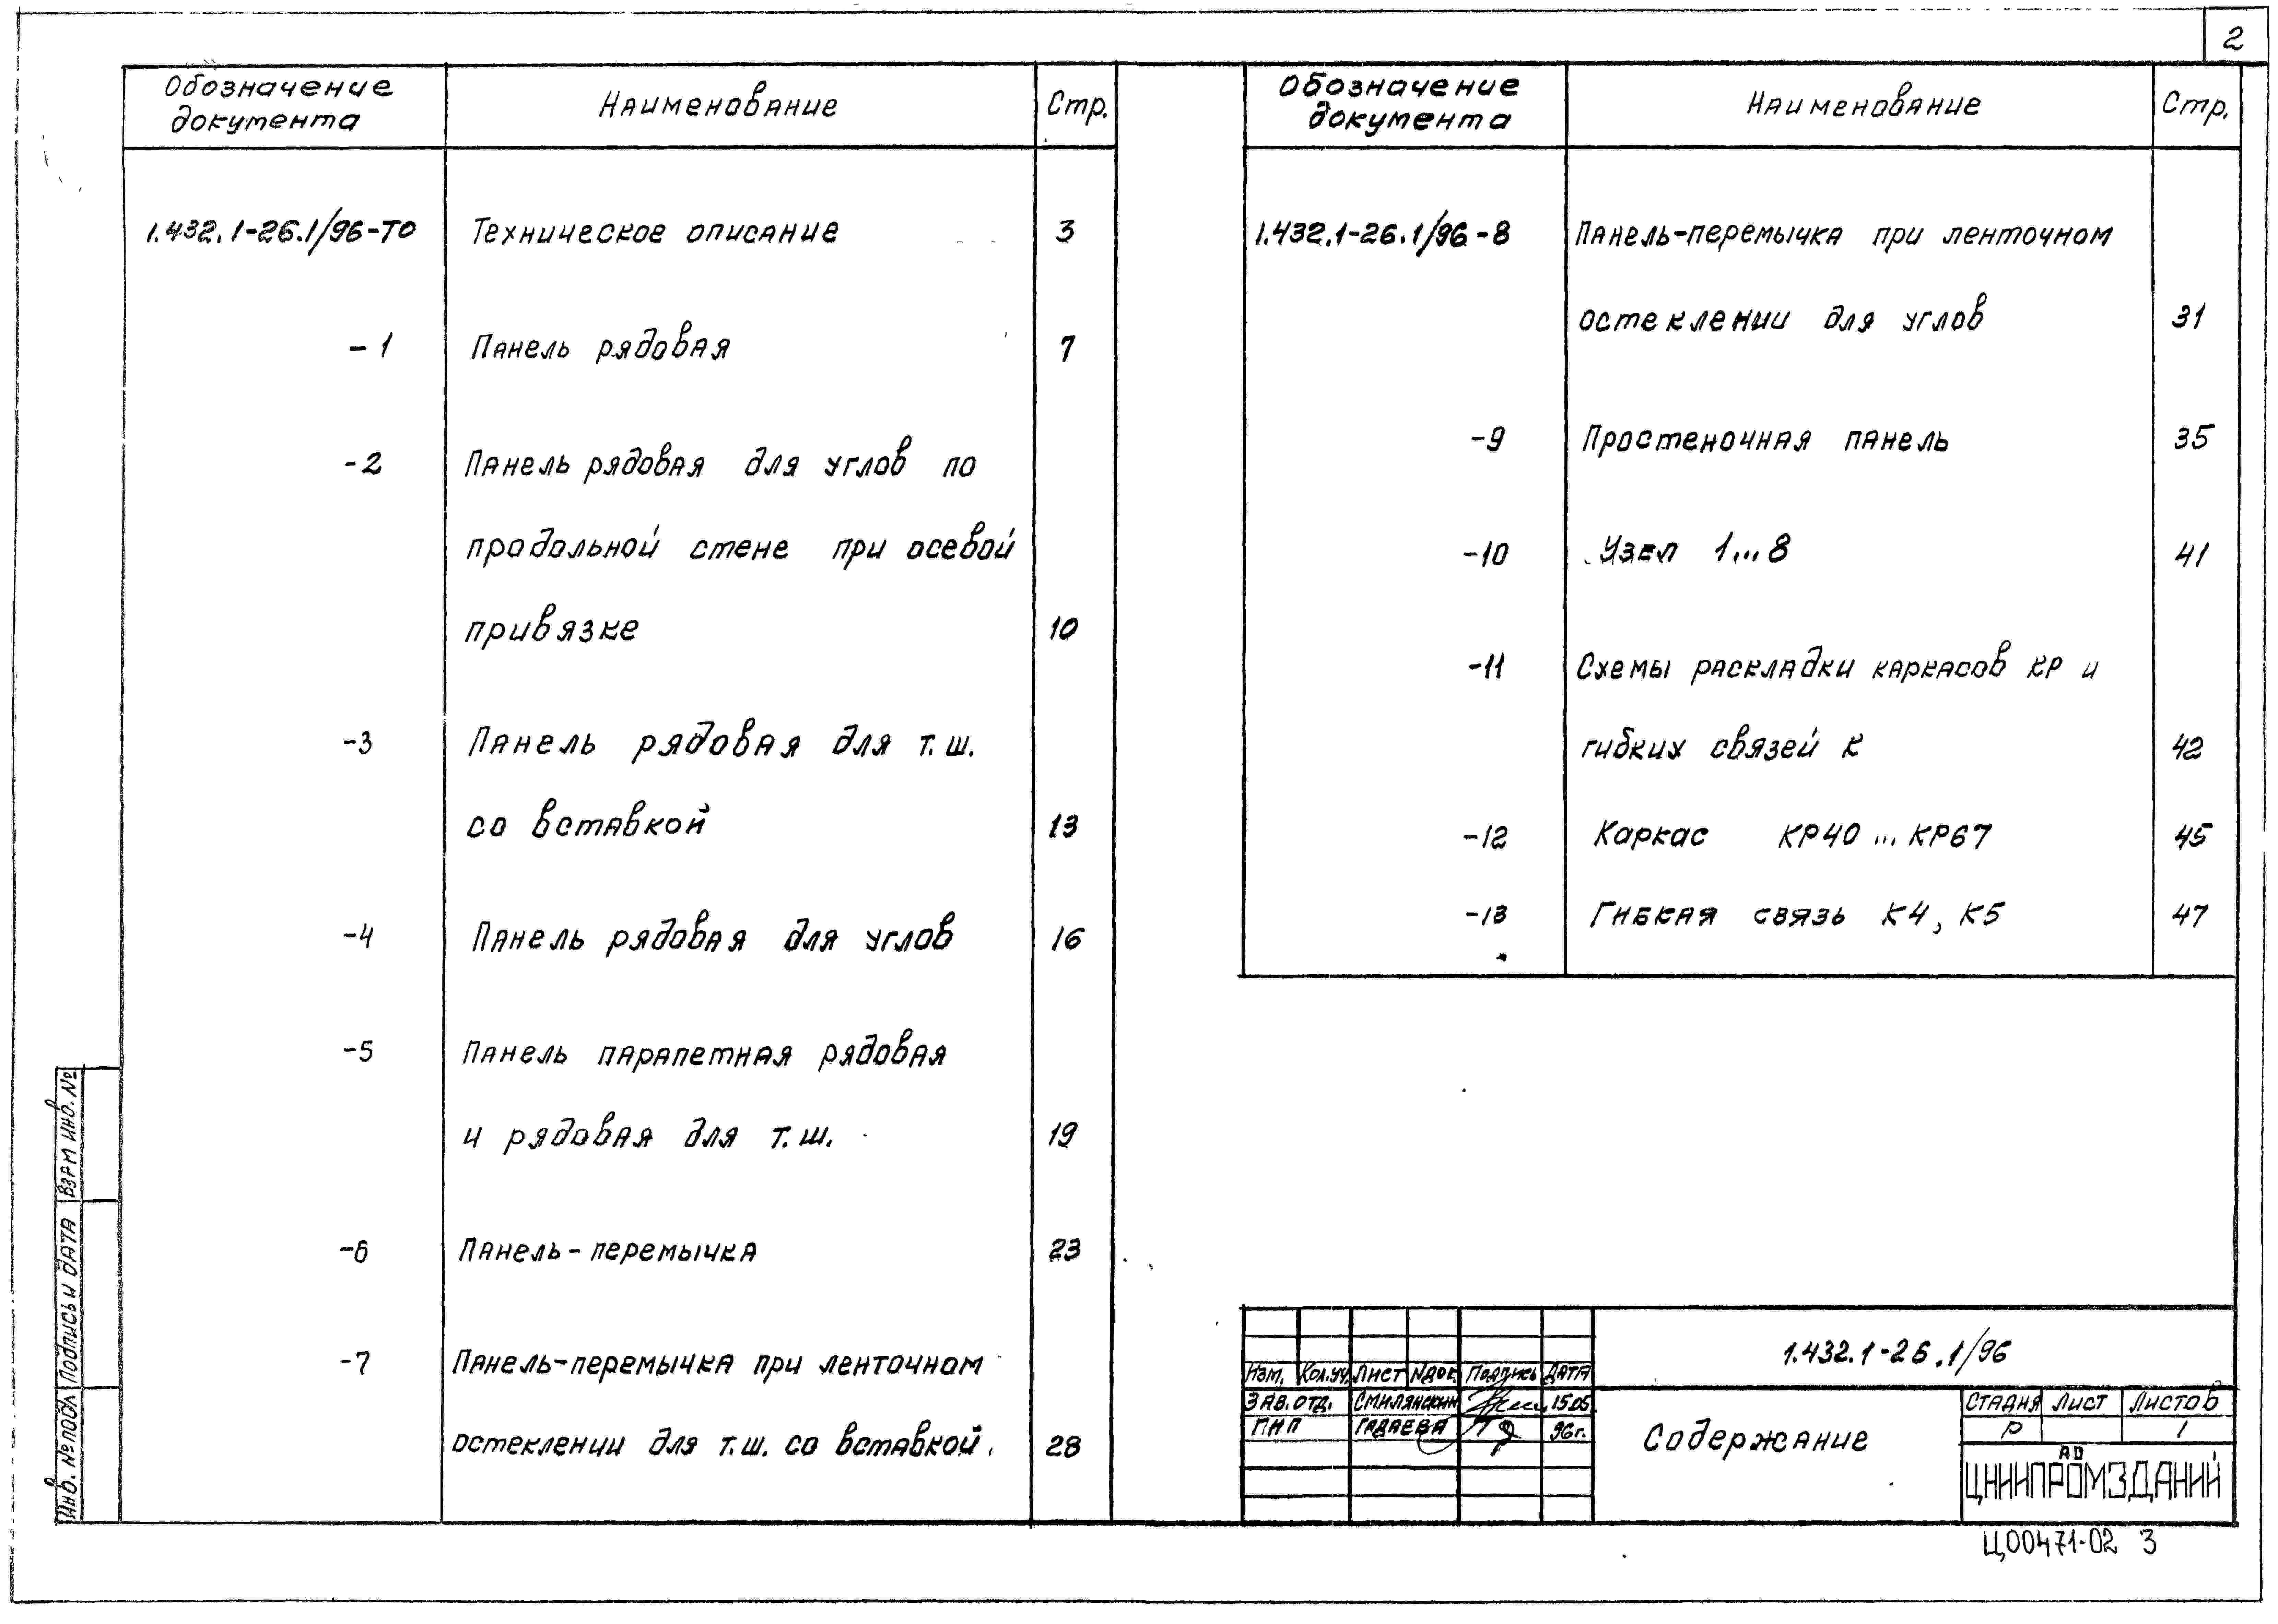 2
Обозначение документа Наименование Стр.
1.432.1-26.1/96-ТО Техническое описание 3
-1 Панель рядовая 7
-2 Панель рядовая для углов по
продольной стене при осевой
привязке 10
-3 Панель рядовая для т.ш.
со вставкой 13
-4 Панель рядовая для углов 16
-5 Панель парапетная рядовая
и рядовая для т.ш. 19
-6 Панель-перемычка 23
-7 Панель-перемычка при ленточном
остеклении для т.ш. со вставкой. 28
Обозначение документа Наименование Стр.
1.432.1-26.1/96-8 Панель-перемычка при ленточном
остеклении для углов 31
-9 Простеночная панель 35
-10 Узел 1...8 41
-11 Схемы раскладки каркасов КР и
гибких связей К 42
-12 Каркас КР40...КР67 45
-13 Гибкая связь К4, К5 47
Взам инв. №
Подпись и дата
Инв. № подл
1.432.1-26.1/96
Изм. Кол.уч. Лист №док. Подпись Дата
Зав. отд. Смилянский 15.05.
ГИП Гадаева 96г.
Содержание
Стадия Лист Листов
Р 1
АО
ЦНИИПРОМЗДАНИЙ
Ц00471-02 3